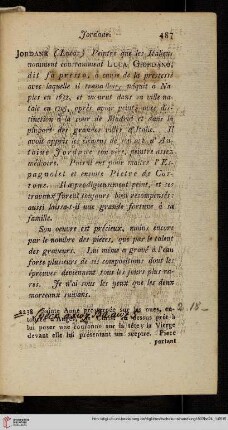 Jordane. 487
JORDANE (Lucas) Peintre que les Italiens
nomment communément LUCA GIORDANO,
dit fa presto, à cause de la prestesse
avec laquelle il travailloit, naquit à Naples
en 1632, et mourut dans sa ville natale
en 1705, après avoir peint avec distinction
à la cour de Madrid et dans la
plupart des grandes villes d'Italie. Il
avoit appris les élémens de son art d'Antoine
Jordane son père, peintre assez
médiocre. Puis il eut pour maître l'Espagnolet
et ensuite Pietre de Cortone.
Il a prodigieusement peint, et ses
travaux furent toujours bien récompensés:
aussi laissa-t-il une grande fortune à sa
famille.
Son oeuvre est précieux, moins encore
par le nombre des pièces, que par le talent
des graveurs. Lui même a gravé à l'eau
forte plusieurs de ses compositions dont les
épreuves deviennent tous les jours plus rares.
Je n'ai sous les yeux que les deux
morceaux suivans.
2218 Sainte Anne sur les nues,
dessus prête à
lui poser une couronne sur la tête; la Vierge
devant elle lui présentant un sceptre. Pièce
portant